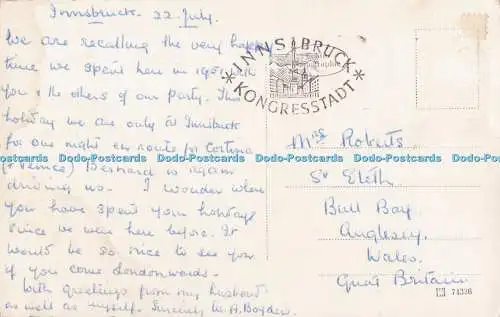 Innsbruck. 22 July.
We are recalling the very happy
time we spent here in 1951 with
you & the others of our party. This
holiday we are only at Innsbruck
for one night en route for Cortina
(& Venice) Bernard is again
driving us. I wonder where
you have spent your holidays
since we were here before. It
would be so nice to see you
if you come londonwards.
With greetings from my husband
as well as myself. Sincerely M. A. Boyden.
* INNSBRUCK *
KONGRESSTADT
Mrs Roberts
St Eleth
Bull Bay.
Anglesey.
Wales.
Great Britain.
74326
Dodo-Postcards Dodo-Postcards Dodo-Postcards Dodo-Postcards Dodo-Postcards